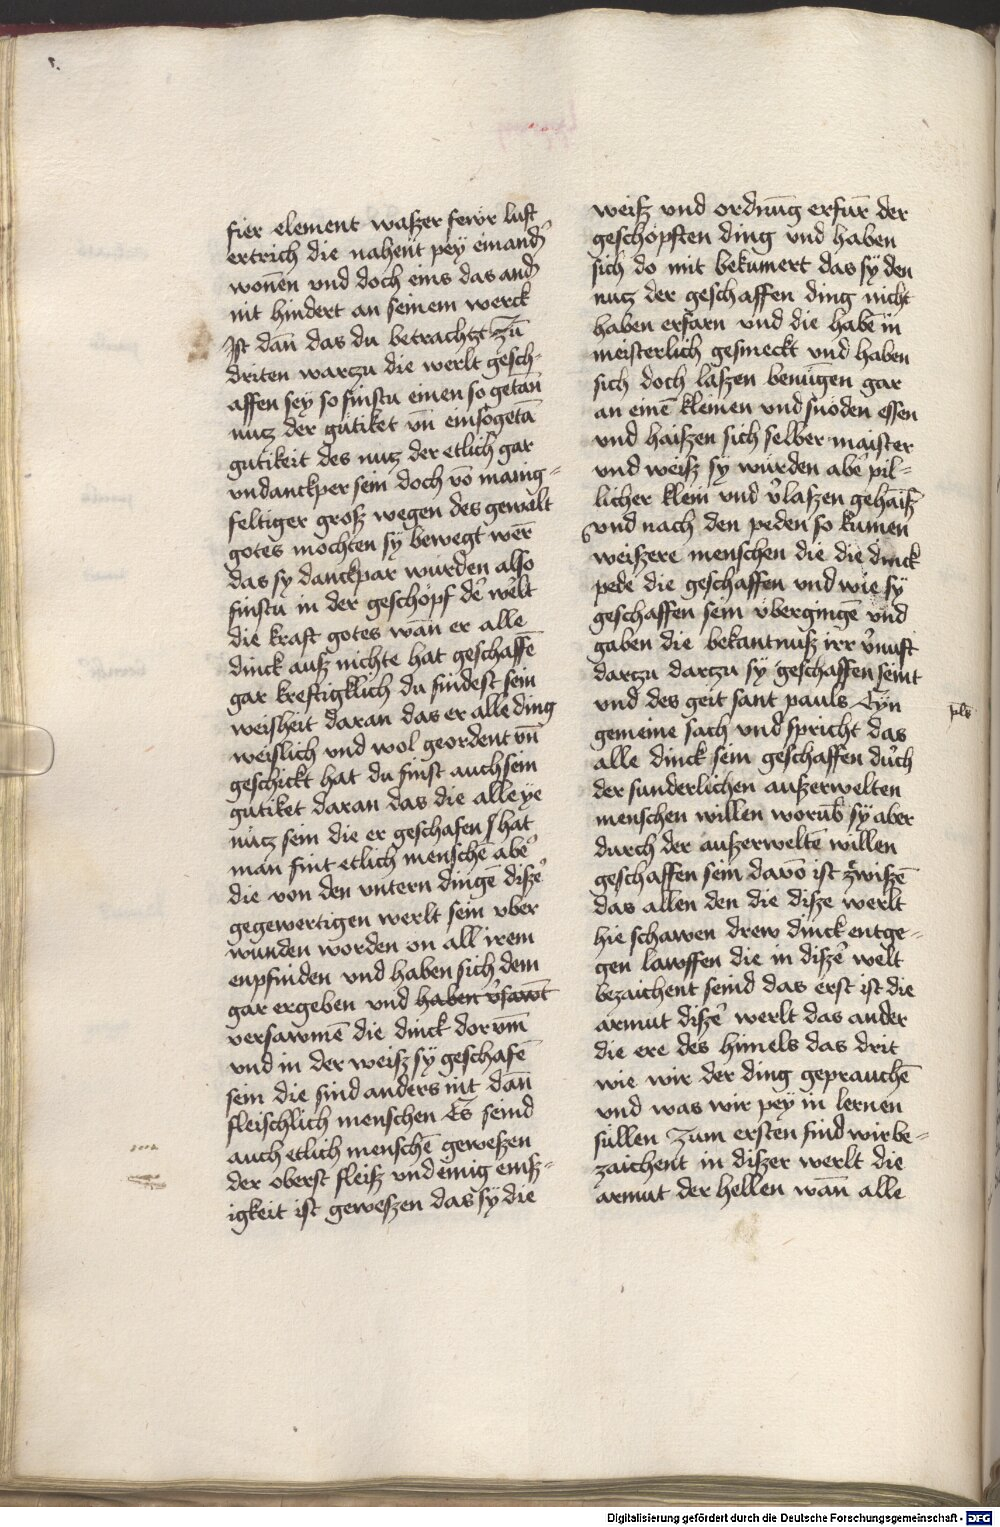 fier element waſzer fewr luft
ertrich die nahent pey einand᷑
wonēn vnd doch eins das and᷑
nit hindert an ſeinem werck
Jſt dān das du betrachtzt Zū
driten warczu die werlt geſch-
affen ſey ſo finſtu einen ſo getan̄
nucz der gutiket vn̄ einſogetā
gutikeit des nucz der etlich gar
vndanckper ſein doch vō manig-
feltiger groſz wegen des gewalt
gotes mochten ſÿ bewegt wēr
das ſy danckpar würden alſo
finſtu in der geſchopf de᷑ we᷑lt
die kraft gotes wān er alle
dinck auſz nichte hat geſchaffē
gar kreftigklich du findeſt ſein
weisheit daran das er alle ding
weislich vnd wol geordent vn̄
geſchickt hat du finſt auch ſein
gutiket daran das die alle ye
nücz ſein die er geſchafen hat
man fint etlich menſchē abe᷑
die von den vntern dingē diſze᷑
gegewertigen werlt ſein vber
wunden worden on all irem
enpfinden vnd haben ſich dem
gar ergeben vnd haben v᷑ſawt
verſawmē die dinck dorvm̄
vnd in der weiſz ſÿ geſchafē
ſein die ſind anders nit dān
fleiſchlich menſchen Es ſeind
auch etlich menſchē geweſzen
der oberſt fleiſz vnd einig emſz-
igkeit iſt geweſzen das ſÿ die
weiſz vnd ordnūg erfūr der
geſchopften ding vnd haben
ſich do mit bekumert das ſÿ den
nucz der geſchaffen ding nicht
haben erfarn vnd die habē in
meiſterlich geſmeckt vnd haben
ſich doch laſzen benūgen gar
an einē kleinen vnd ſnoden eſſen
vnd haiſzen ſich ſelber maiſter
vnd weiſz ſÿ würden abe᷑ pil-
licher klein vnd v᷑laſzen gehaiſz̄
vnd nach den peden ſo kumen
weiſzere menſchen die die dinck
pede die geſchaffen vnd wie ſÿ
geſchaffen ſein vbergingē vnd
gaben die bekantnuſz irr v᷑nuft
darczu darczu ſÿ geſchaffen ſeint
vnd des geit ſant pauls Eÿn
gemeine ſach vnd ſpricht das
alle dinck ſein geſchaffen du᷑ch
der ſunderlichen auſzerwelten
menſchen willen worūb ſÿ aber
durch der auſzerweltē willen
geſchaffen ſein davō iſt zwiſzē
das allen den die diſze werlt
hie ſchawen drew dinck entge-
gen lawffen die in diſze᷑ welt
bezaichent ſeind das erſt iſt die
armut diſze᷑ werlt das ander
die ere des himels das drit
wie wir der ding geprauchē
vnd was wir peÿ in lernen
ſüllen Zum erſten ſind wir be-
zaichent in diſzer werlt die
armut der hellen wān alle
pls
Digitalisierung gefördert durch die Deutsche Forschungsgemeinschaft - DFG